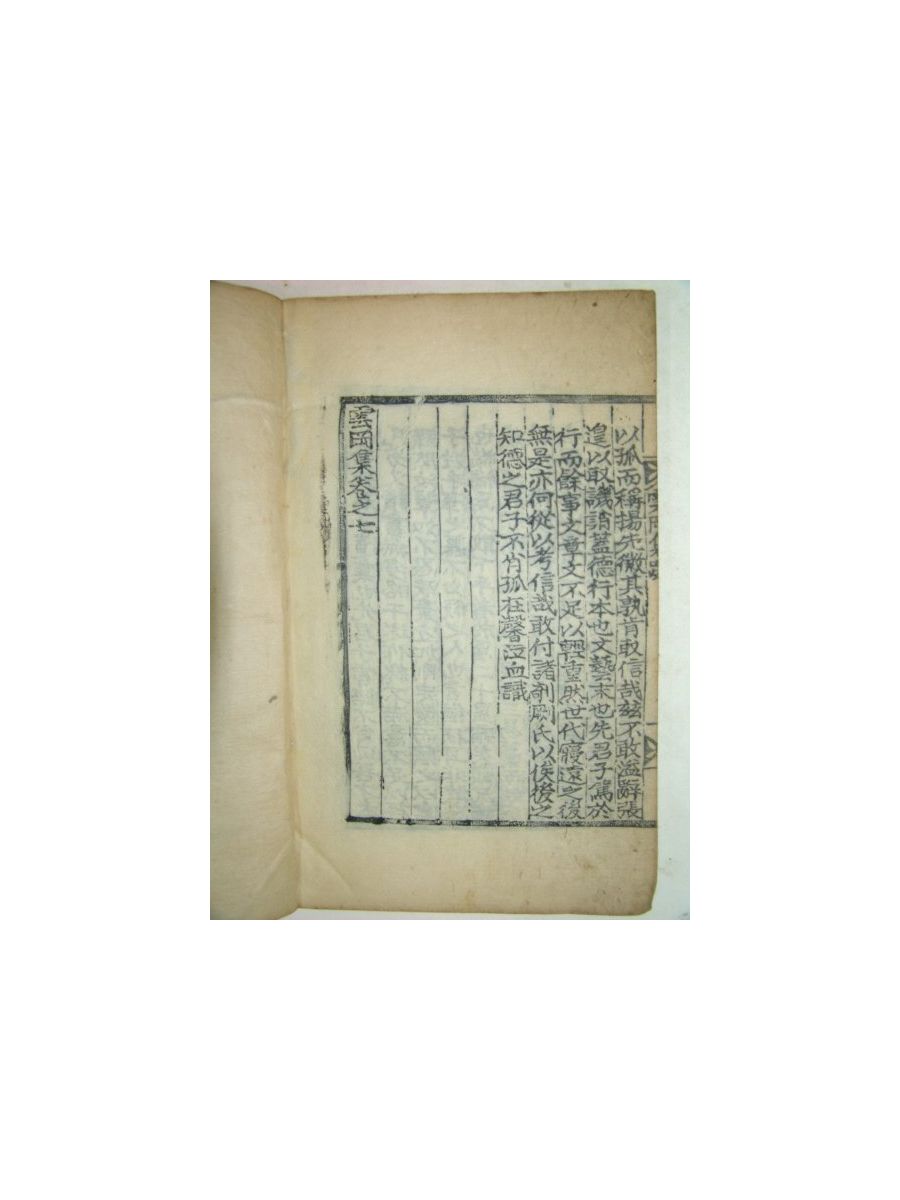 以孤而稱揚先徽其孰肯取信哉玆不敢溢辭張
遑以取譏誚蓋德行本也文藝末也先君子篤於
行而餘事文章文不足以輕重然世代寢遠之後
無是亦何從以考信哉敢付諸剞劂氏以俟後之
知德之君子不肖孤在馨泣血識
雲岡集卷之七